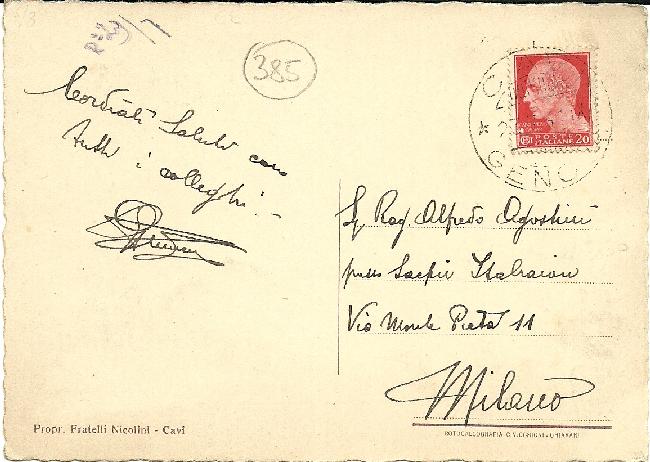 385
Cordiali Saluti con
tutti i colleghi.
POSTE
ITALIANE 20
GENO
Rag. Alfredo Agostini
presso
Via Monte Pietà 11
Milano
Propr. Fratelli Nicolini - Cavi